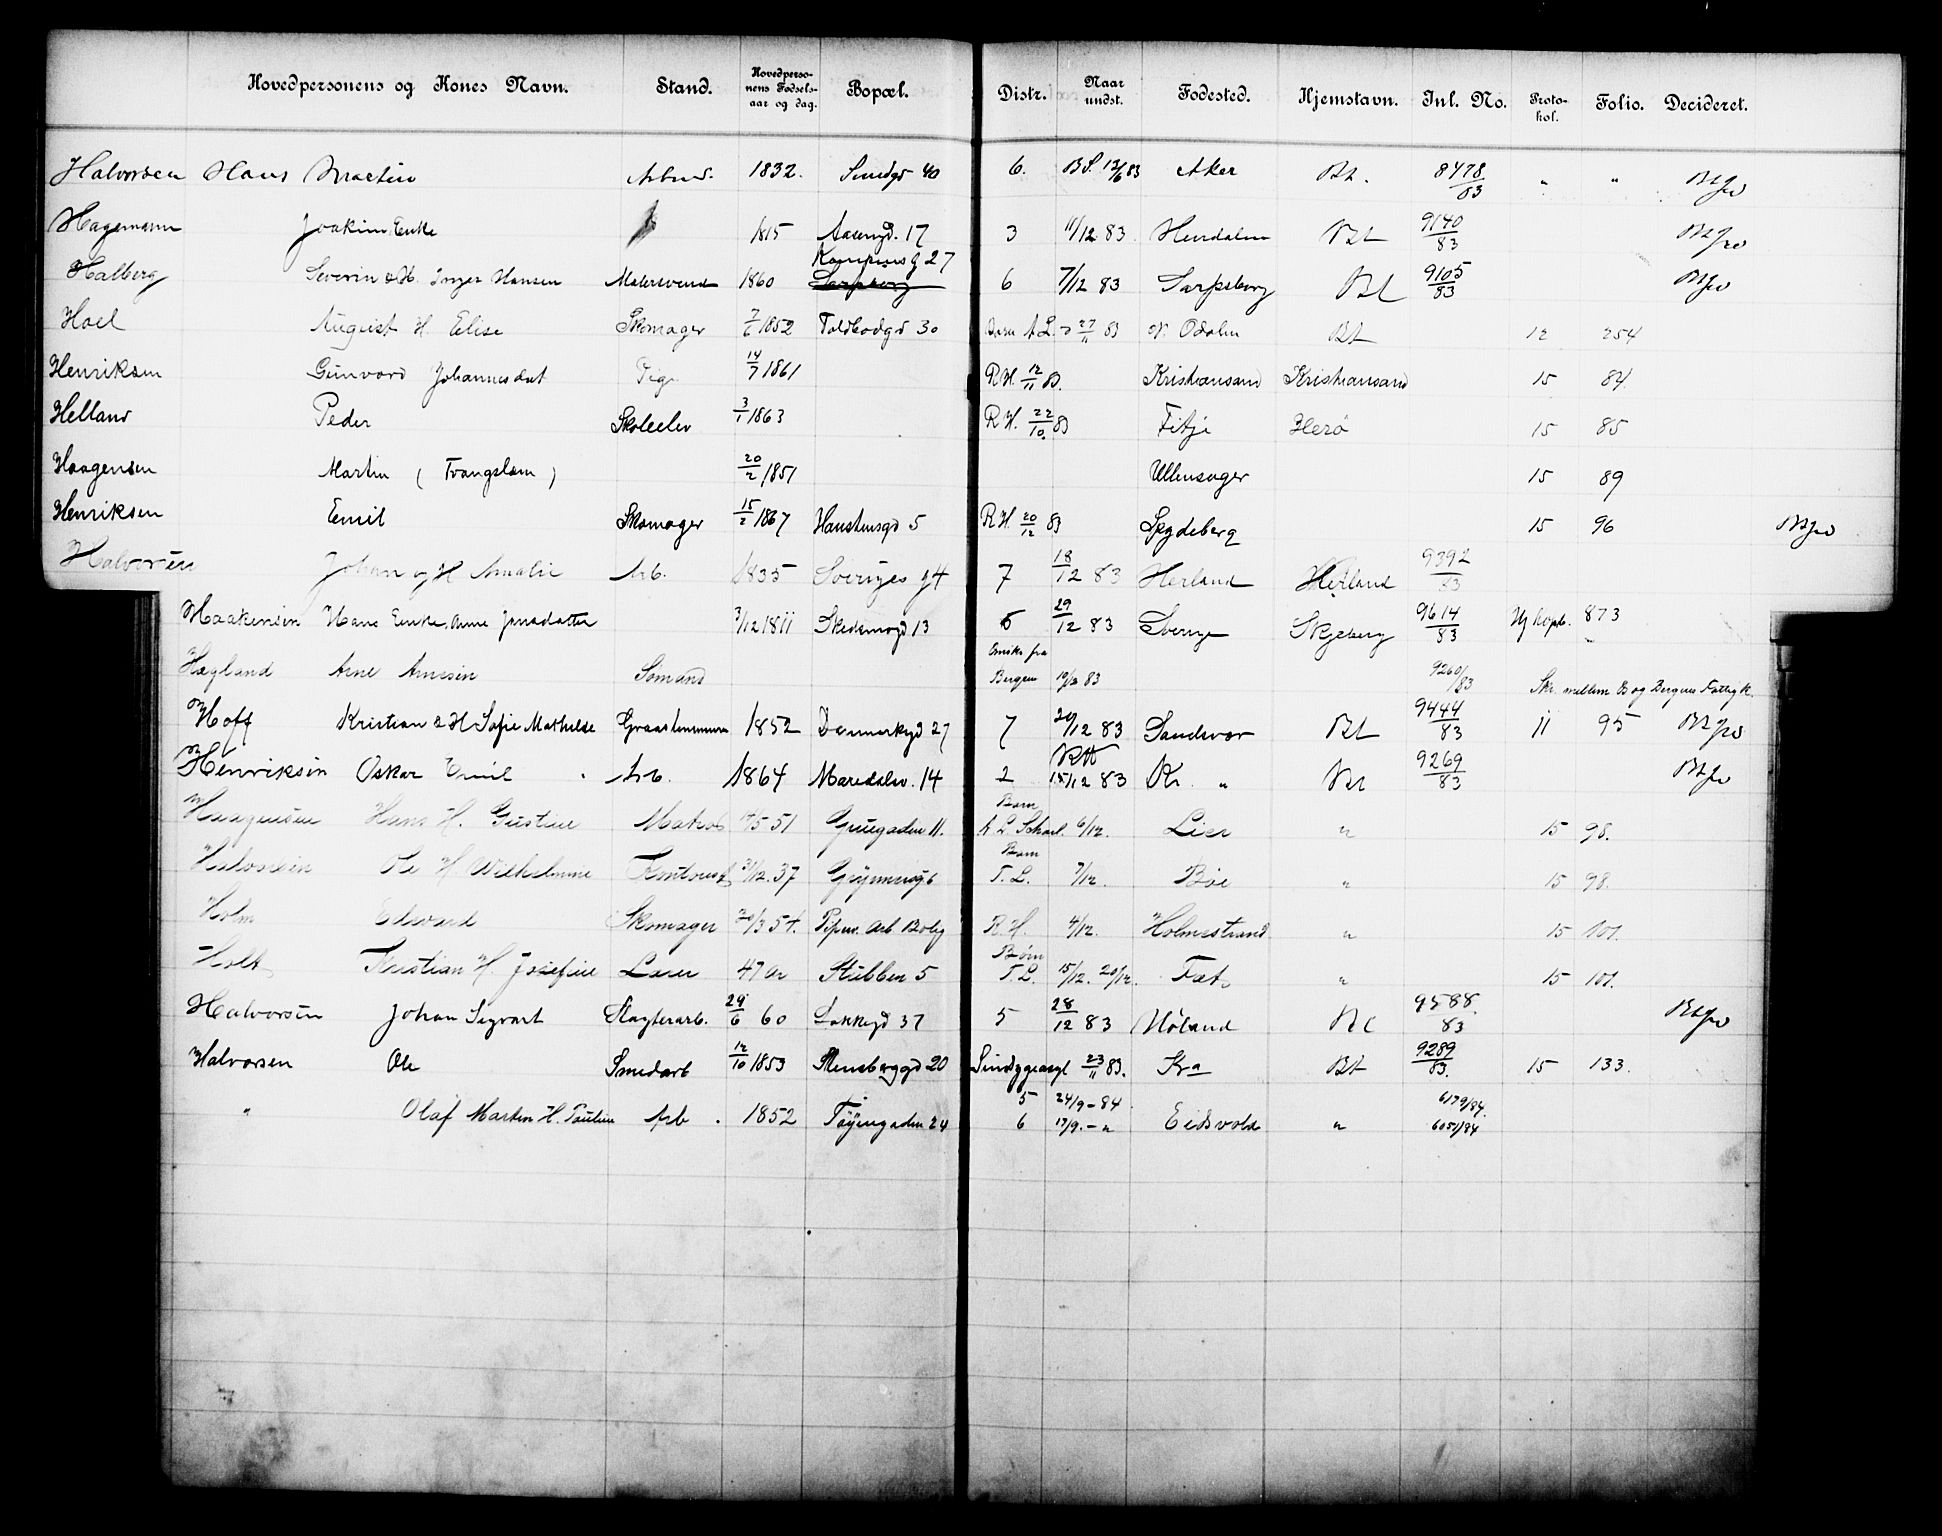 Hovedpersonens og Kones Navn. Stand. Hovedpersonens Fødselsaar og dag. Bopæl. Distr. Naar undst. Fødested. Hjemstavn. Jnl. No. Protokol. Folio. Decideret.
Halvorsen Hans Martin 1832. Smedgd 40 6. 83 Aker Bt. 8478/83 " "
Hagemann Joakim, Enke 1815 17 3 11/12 83 Bt 9140/83
Kampensg 27
Halberg Severin & H. Inger Hansen Malersvend 1860 Sarpsborg 6 7/12 83 Sarpsborg Bt 9105/83
Hoel August H. Elise Skomager 7/6 1852 Toldbodgd 30 27/11 83 N. Odalen Bt 12 254
Henriksen Gunvord Johannesdat Pige 14/7 1861 R.H. 12/11 83. Kristiansand Kristiansand 15 84
Helland Peder Skoleelev 3/1 1863 R.H. 22/10 83 Fitje Herö 15 85
Haagensen Martin ( Tvangslem ) 20/2 1851 Ullensager 15 89
Henriksen Emil Skomager 15/2 1867 Haustensgd 5 R.H. 20/12 83 Spydeberg 15 96
Halvorsen Johan og H Amalie Arb. 1835 Sveriges g 4 7 18/12 83 Herland Herland 9392/83
Haakensen Hans Enke, Anne Jonsdatter 3/12 1811 Skedsmogd 13 6 29/12 83 Sverige Skjeberg 9614/83 873
Hægland Arne Arnesen Sömand Ønsks fra Bergen 83 9260/83 Skr. mellem B og Bergens Fattigk.
Hoff Kristian & H Sofie Mathilde 1852 Danmarkgd 27 7 20/12 83 Sandsvær Bt 9444/83 11 95
Henriksen Oskar Emil Arb. 1864 Maredalsv. 14 2 RH 15/12 83 Kr. " Bt 9269/83
Haagensen Hans H. Gustine Matros 5 51 Gruegaden 11. Barn 6/12. Lier " 15 98.
Halvorsen Ole H Wilhelmine 31/12. 37 Barn T. L. 7/12. Böe " 15 98.
Holm Edvard Skomager 30/3 54. Pipere. Arb Bolig R.H. 4/12. Holmestrand " 15 101.
Holt Kristian H. Josefine 47 Ar Stubben 5 Børn T.L. 15/12. 20/12. Fet. " 15 101.
Halvorsen Johan Sigvart Slagterarb. 29/6 60 Lakkegd 37 5 28/12 83 Höland Bt 9588/83
Halvorsen Ole Smedarb 12/10 1853 Stensberggd 20 23/11 83. Kra Bt 9289/83. 15 133.
" Olaf Martin H. Pauline Arb. 1852 Töÿengaden 24 5 24/9-84 Eidsvold " 6179/84.
6 17/9.-" 6051/84